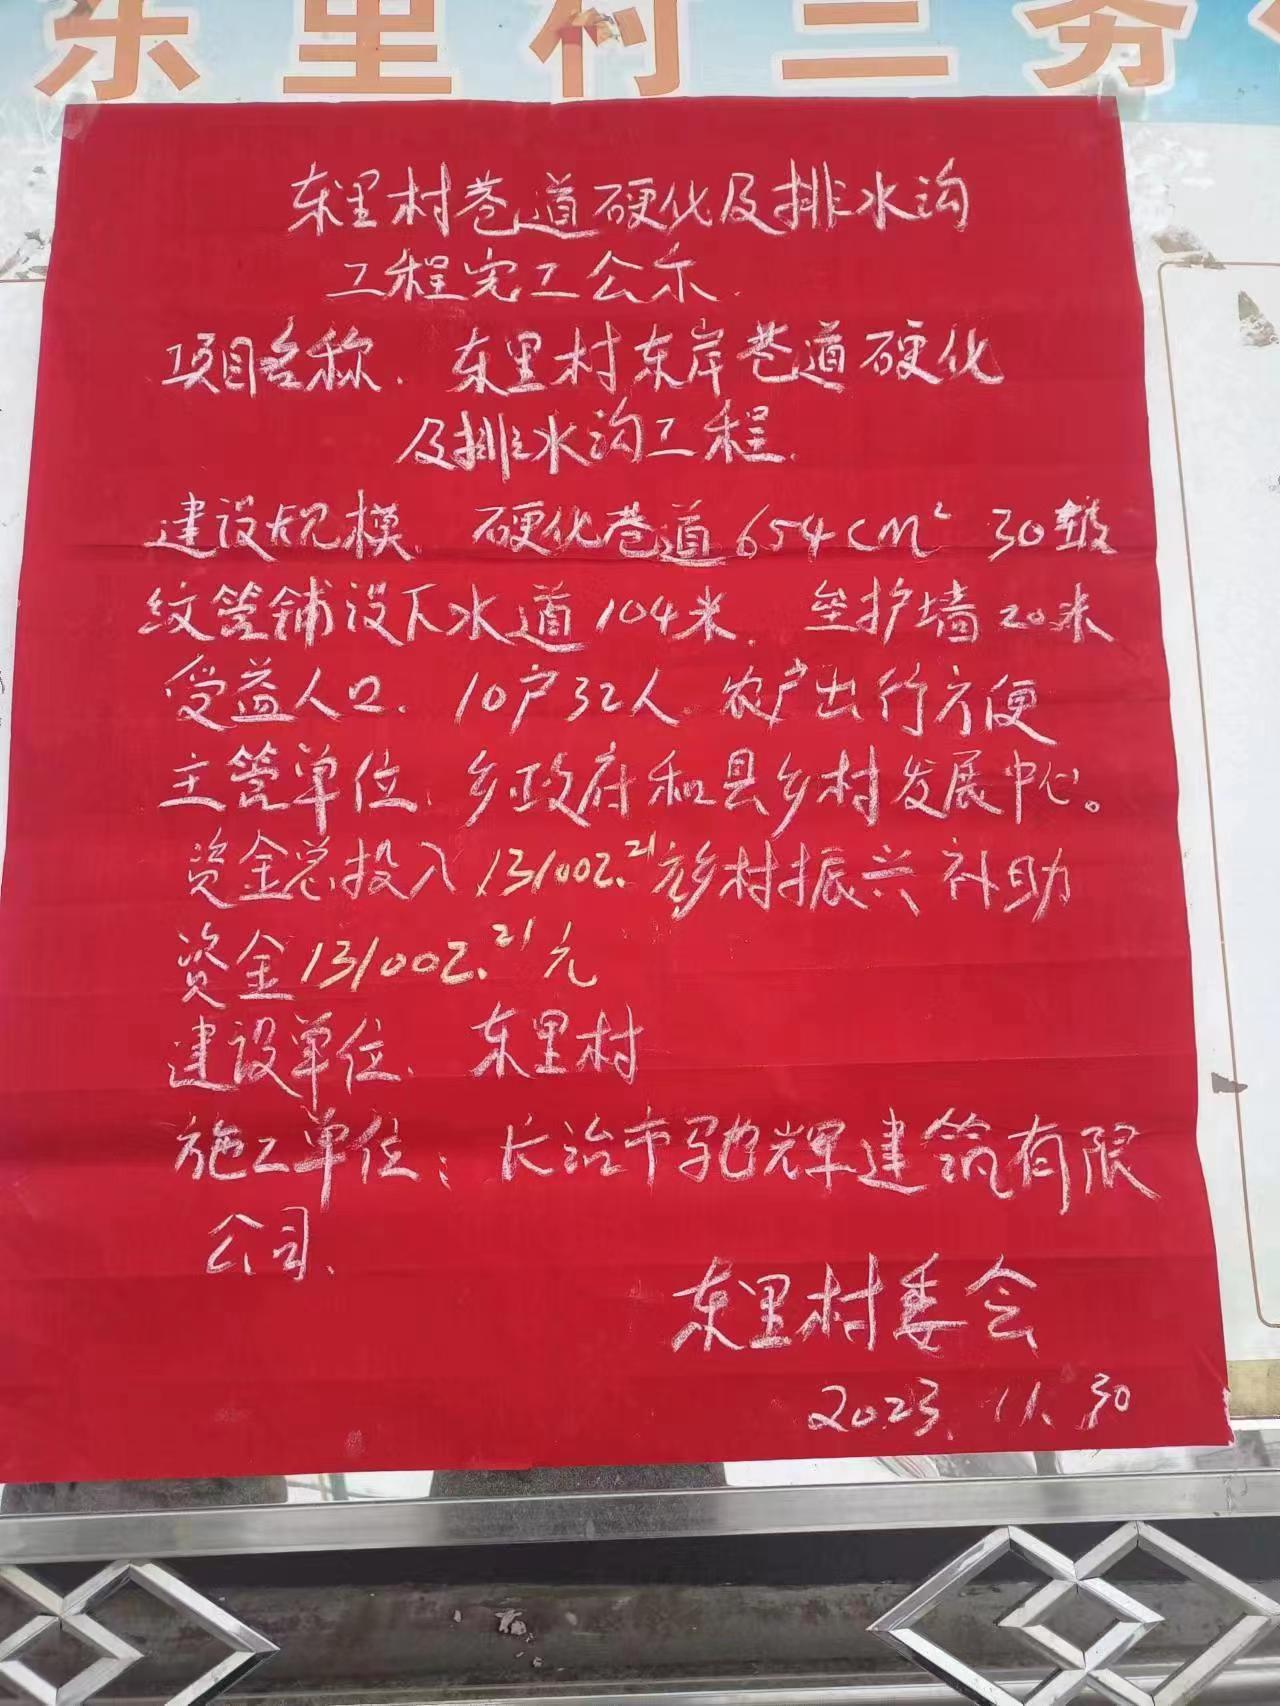 东里村三务
东里村巷道硬化及排水沟
工程完工公示.
项目名称. 东里村东岸巷道硬化
及排水沟工程.
建设规模. 硬化巷道654cm² 30
纹管铺设下水道104米. 垒护墙20米
受益人口. 10户32人. 农户出行方便
主管单位. 乡政府和县乡村发展中心。
资金总投入131002.21元乡村振兴补助
资金131002.21元
建设单位. 东里村
施工单位: 长治市驰辉建筑有限
公司.
东里村委会
2023. 11. 30